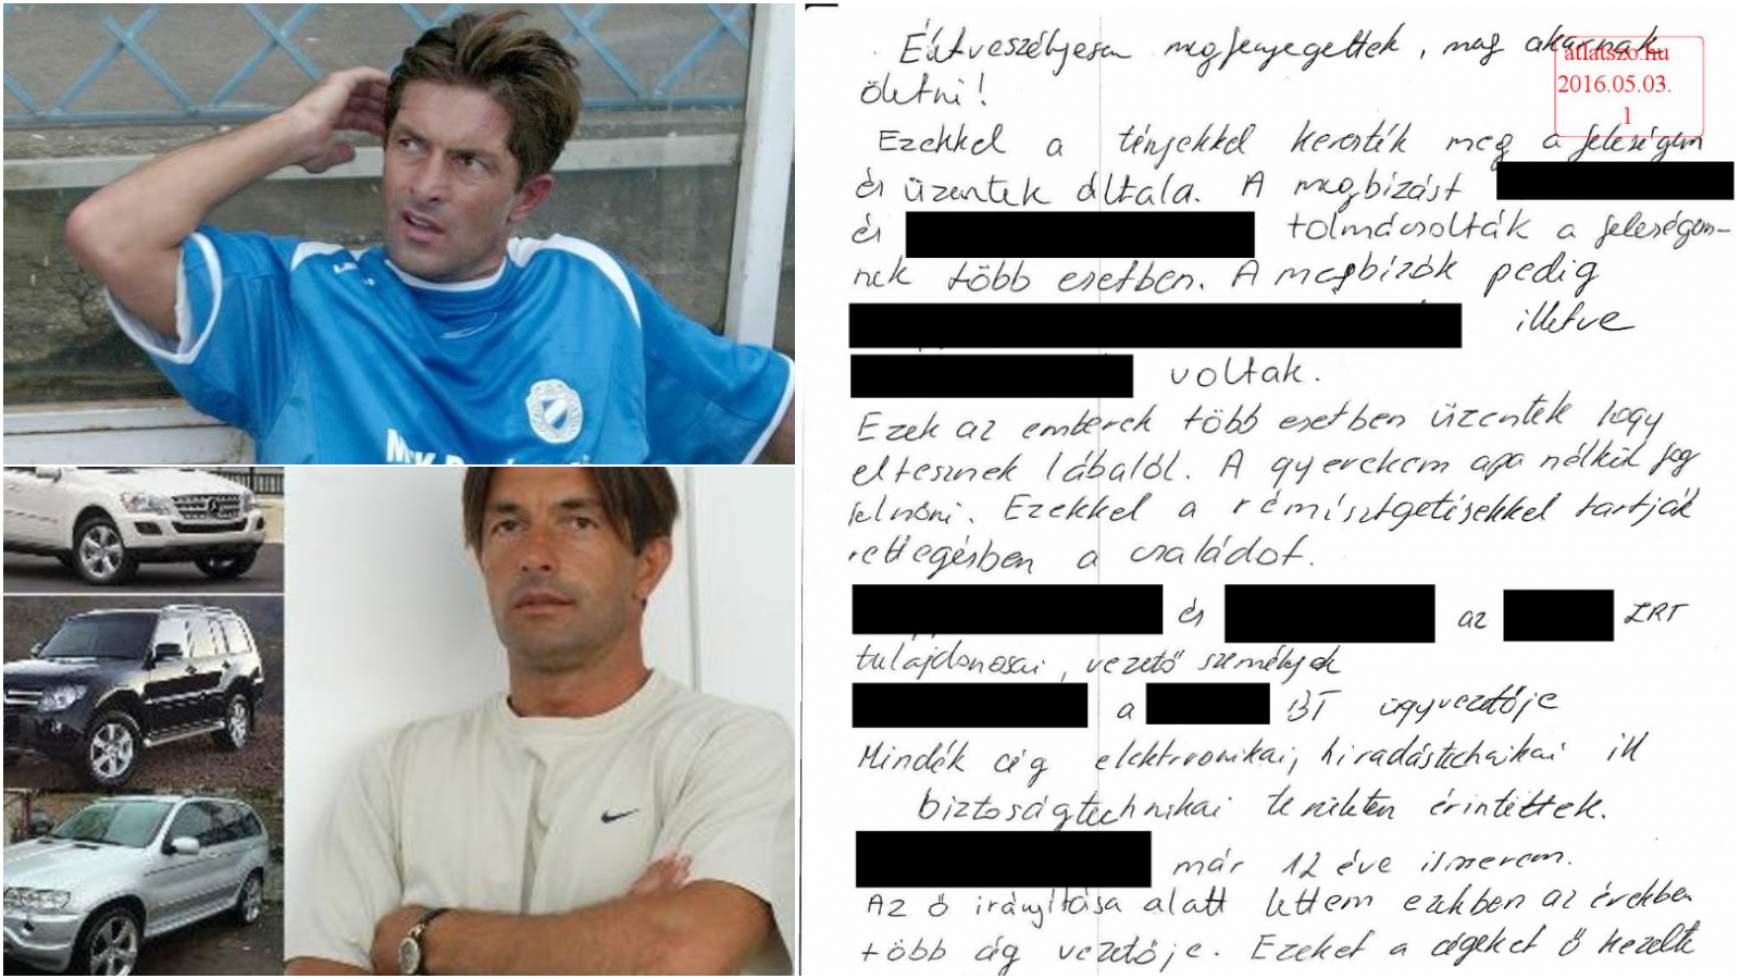 Életveszélyesen megfenyegettek, meg akarnak
öletni!
Ezekkel a tényekkel keresték meg a feleségem
és üzentek általa. A megbízást
és tolmácsolták a feleségem-
nek több esetben. A megbízók pedig
illetve
voltak.
Ezek az emberek több esetben üzentek hogy
eltesznek lábalól. A gyerekem apa nélkül fog
felnőni. Ezekkel a rémisztgetésekkel tartják
rettegésben a családot.
és az ZRT
tulajdonosai, vezető személyek
a BT ügyvezetője
Mindék cég elektronikai, híradástechnikai ill
biztoságtechnikai területen érintettek.
már 12 éve ismerem.
Az ő irányítása alatt lettem ezekben az években
több cég vezetője. Ezeket a cégeket ő kezelte
atlatszo.hu
2016.05.03.
1